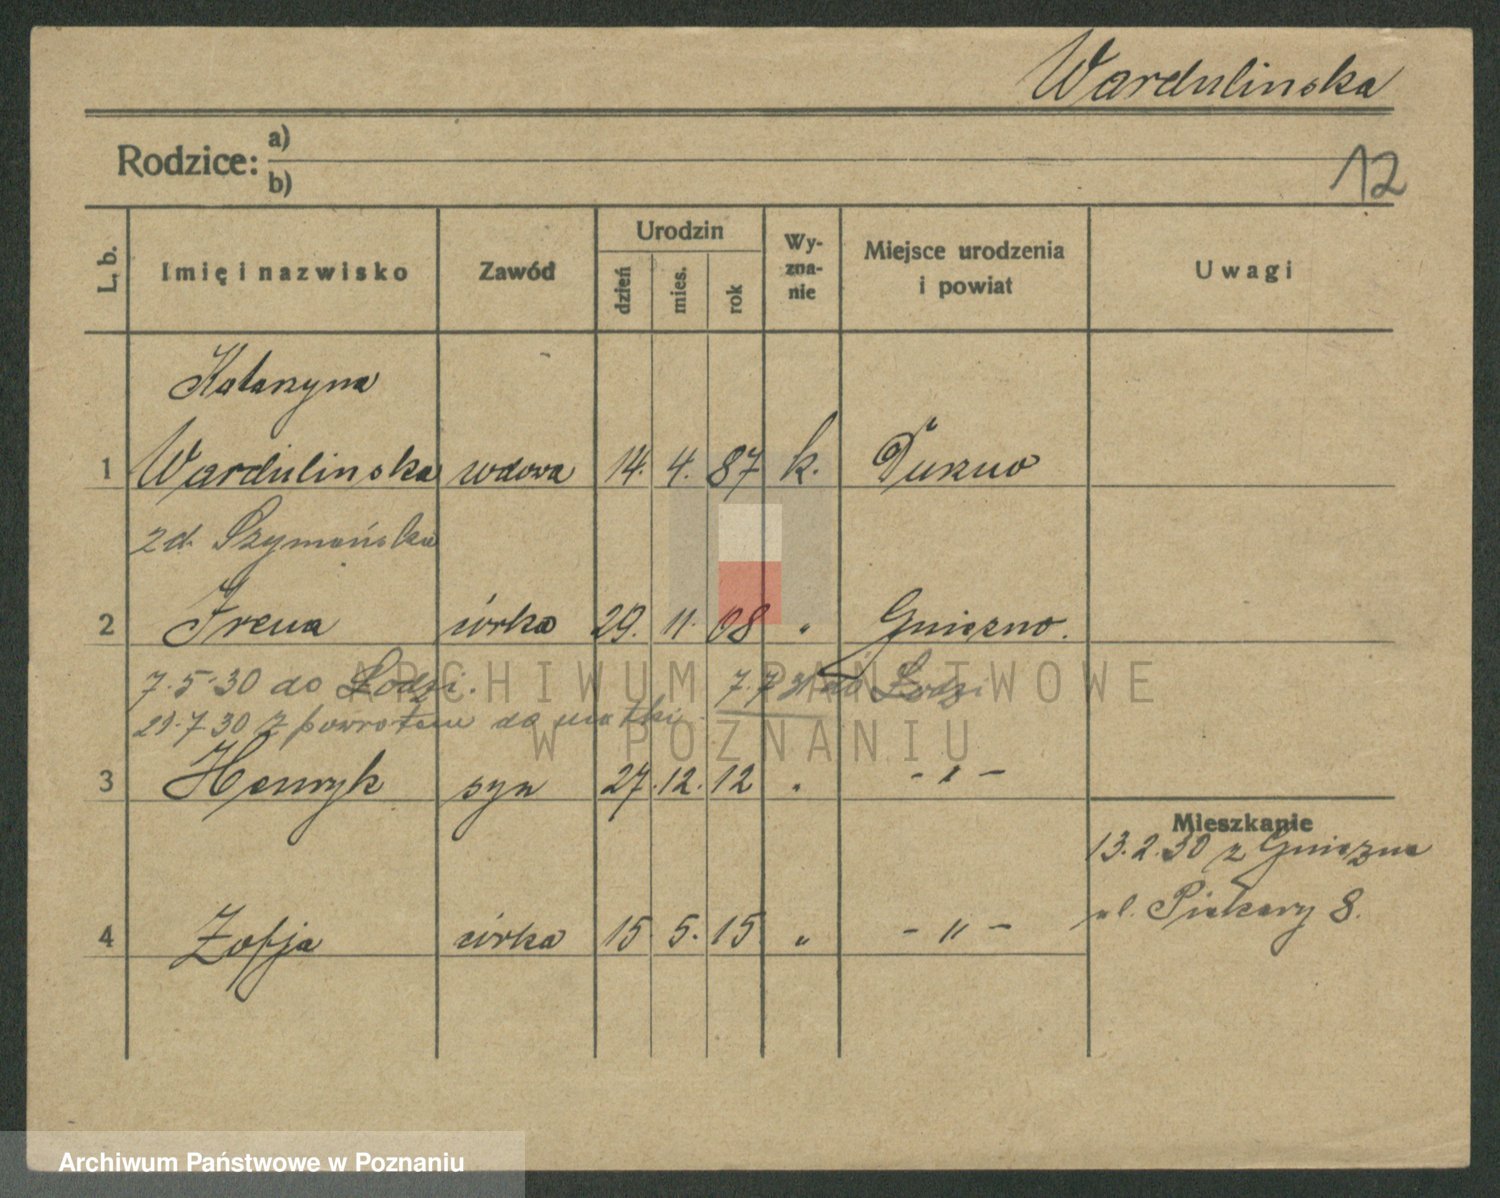 Wardulinska
12
Rodzice: a)
b)
L. b.
Imię i nazwisko
Zawód
Urodzin
dzień
mies.
rok
Wy-
zna-
nie
Miejsce urodzenia
i powiat
Uwagi
Katarzyna
1 Wardulinska wdowa 14. 4. 87 k.
Szymańska
2 Irena córka 29. 11. 08 " Gniezno.
7.5.30 do Łodzi. 7.7 do Łodzi
29.7.30 z powrotem do matki.
3 Henryk syn 27. 12. 12 " - " -
Mieszkanie
13.2.30 z Gniezna
ul. Piekary 8.
4 Zofja córka 15. 5. 15 " - " -
ARCHIWUM PAŃSTWOWE
W POZNANIU
Archiwum Państwowe w Poznaniu